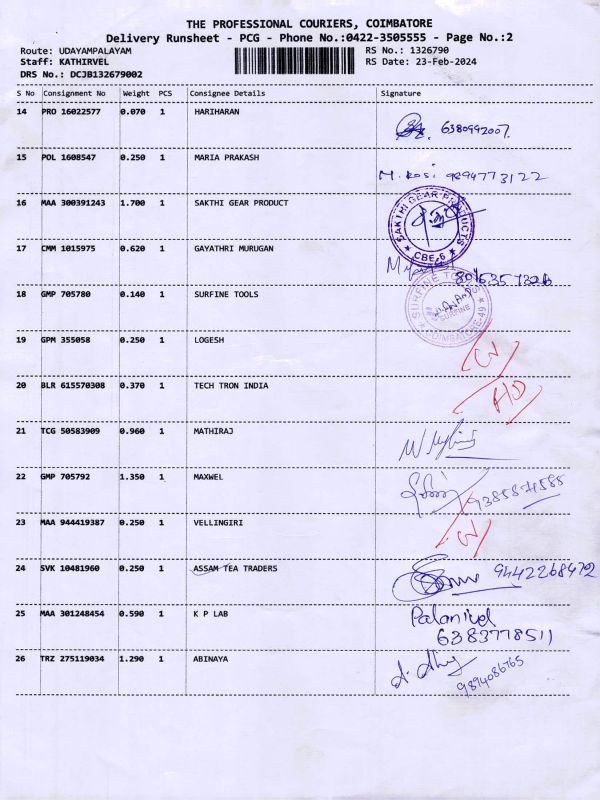 THE PROFESSIONAL COURIERS, COIMBATORE
Delivery Runsheet - PCG - Phone No.:0422-3505555 - Page No.:2
Route: UDAYAMPALAYAM RS No.: 1326790
Staff: KATHIRVEL RS Date: 23-Feb-2024
DRS No.: DCJB132679002
S No Consignment No Weight PCS Consignee Details Signature
14 PRO 16022577 0.070 1 HARIHARAN
6380992007
15 POL 1608547 0.250 1 MARIA PRAKASH
9894773122
16 MAA 300391243 1.700 1 SAKTHI GEAR PRODUCT
SAKTHI GEAR PRODUCTS
CBE-6
17 CMM 1015975 0.620 1 GAYATHRI MURUGAN
18 GMP 705780 0.140 1 SURFINE TOOLS
SURFINE
COIMBATORE-49
19 GPM 355058 0.250 1 LOGESH
20 BLR 615570308 0.370 1 TECH TRON INDIA
21 TCG 50583909 0.960 1 MATHIRAJ
22 GMP 705792 1.350 1 MAXWEL
23 MAA 944419387 0.250 1 VELLINGIRI
24 SVK 10481960 0.250 1 ASSAM TEA TRADERS
9442268472
25 MAA 301248454 0.590 1 K P LAB
Palanivel
6383778511
26 TRZ 275119034 1.290 1 ABINAYA
9894086765